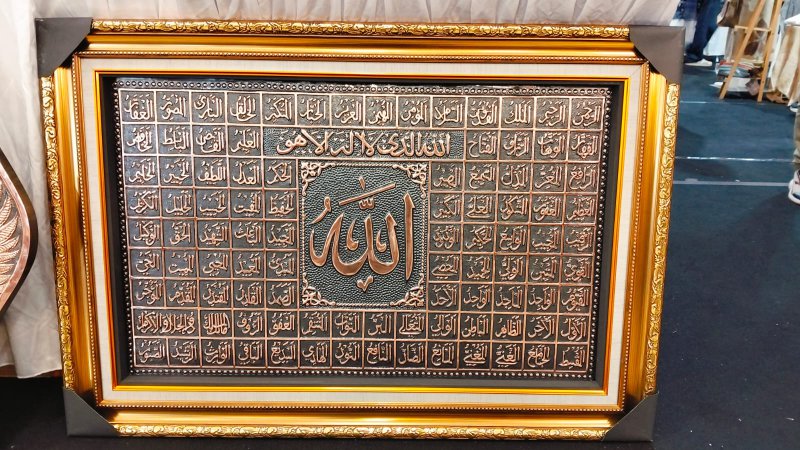 الرحمن الرحيم الملك القدوس السلام المؤمن المهيمن العزيز الجبار المتكبر الخالق البارئ المصور الغفار
القهار الوهاب الرزاق الفتاح الله الذي لا اله الا هو العليم القابض الباسط الخافض
الرافع المعز المذل السميع البصير الحكم العدل اللطيف الخبير الحليم
العظيم الغفور الشكور العلي الكبير الحفيظ المقيت الحسيب الجليل الكريم
الله
الرقيب المجيب الواسع الحكيم الودود المجيد الباعث الشهيد الحق الوكيل
القوي المتين الولي الحميد المحصي المبدئ المعيد المحيي المميت الحي
القيوم الواجد الماجد الواحد الاحد الصمد القادر المقتدر المقدم المؤخر
الاول الاخر الظاهر الباطن الوالي المتعالي البر التواب المنتقم العفو الرؤف مالك الملك ذو الجلال والاكرام
المقسط الجامع الغني المغني المانع الضار النافع النور الهادي البديع الباقي الوارث الرشيد الصبور